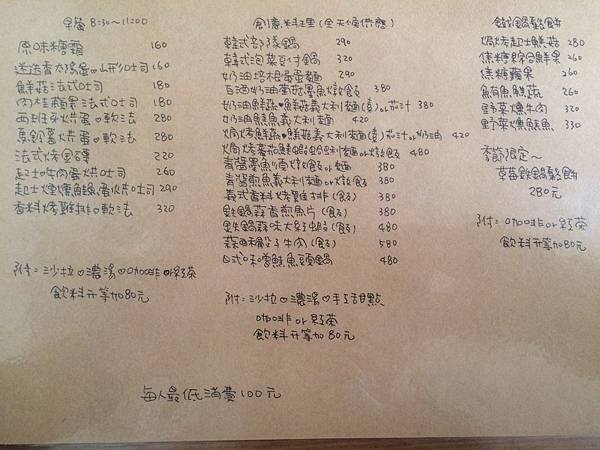 早餐 8:30~11:00
原味糖霜 160
迷迭香太陽蛋♡山形吐司 160
鮮菇法式吐司 180
肉桂蘋果法式吐司 180
西班牙烘蛋♡軟法 280
夏鈴薯烤蛋♡軟法 280
法式烤 220
起士牛肉蛋烘吐司 260
起士燻鮭魚蛋烘吐司 290
香料烤雞排♡軟法 320
附:沙拉♡濃湯♡咖啡or紅茶
飲料升等加80元
創意料理(全天候供應)
韓式部隊鍋 290
韓式泡菜豆付鍋 320
奶油培根蛋蛋麵 290
白酒奶油蘑菇墨魚燉飯 380
奶油鮮蔬♡鮮菇義大利麵(素)or茄汁 380
奶油鮭魚義大利麵 420
焗烤鮮蔬♡鮮菇義大利麵(素)茄汁or奶油 420
焗烤蕃茄鮮蝦蛤蜊麵or燉飯 420
青醬墨魚燉飯or麵 380
青醬鮭魚義大利麵or燉飯 380
義式香料烤雞排(飯) 380
鐵鍋蒜香煎魚片(飯) 380
鐵鍋蒜味大紅蝦(飯) 480
蒜味骰子牛肉(飯) 580
日式味噌鮭魚豆腐鍋 480
附:沙拉♡濃湯♡手工甜點
咖啡or紅茶
飲料升等加80元
鐵鍋鬆餅
焗烤起士鮮菇 280
焦糖綜合鮮果 260
焦糖蘋果 260
鮪魚鮮蔬 260
野菜燻牛肉 320
野菜燻鮭魚 330
季節限定~
草莓鐵鍋鬆餅
280元
附:咖啡or紅茶
飲料升等加80元
每人最低消費100元